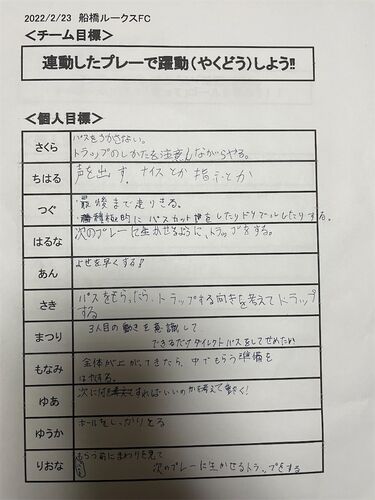 2022/2/23 船橋ルークスFC
＜チーム目標＞
連動したプレーで躍動（やくどう）しよう!!
＜個人目標＞
さくら
パスをうかさない。
トラップのしかたを注意しながらやる。
ちはる
声を出す。ナイスとか指示とか
つぐ
・最後まで走りきる。
・積極的にパスカットをしたりドリブルしたりする。
はるな
次のプレーに生かせるように、トラップをする。
あん
よせを早くする!
さき
パスをもらったら、トラップする向きを考えてトラップ
する
まつり
3人目の動きを意識して
できるだけダイレクトパスをしてせめたい
もなみ
全体が上がってきたら、中でもらう準備を
する。
ゆあ
次に何をすればいいのかを考えて動く!
ゆうか
ボールをしっかりとる
りおな
もらう前にまわりを見て
次のプレーに生かせるトラップをする